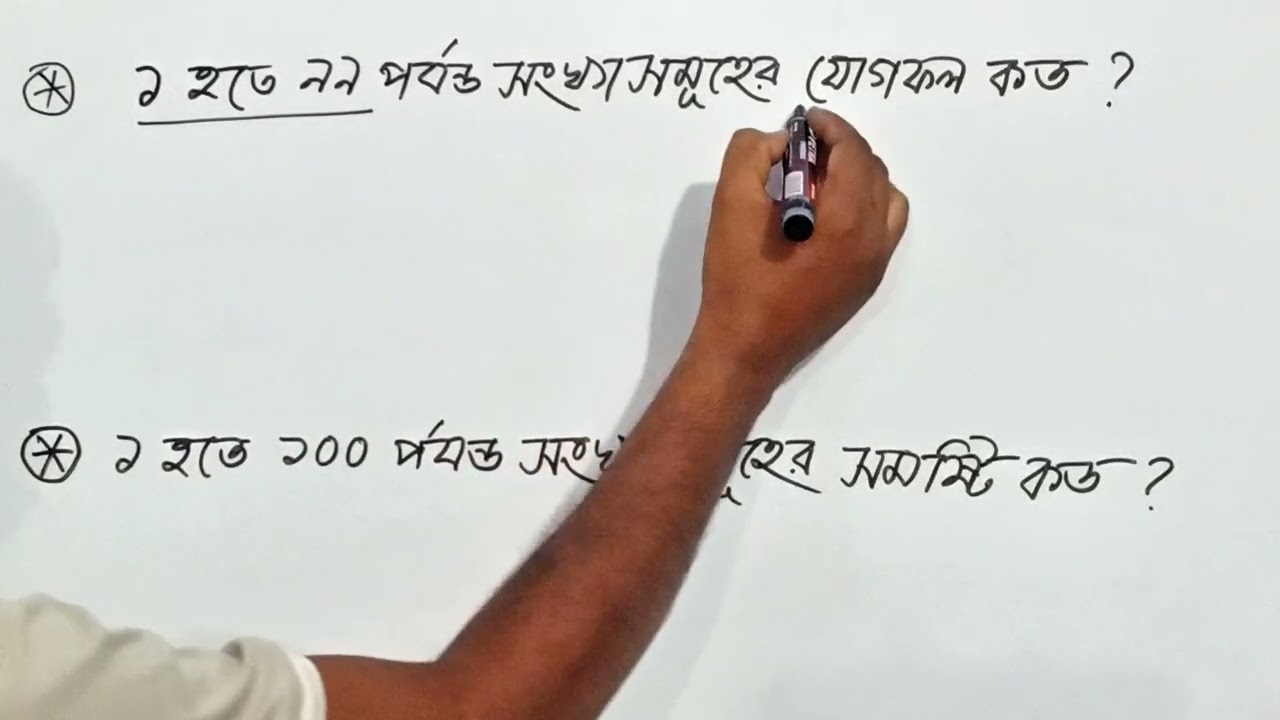 * ১ হতে ৯৯ পর্যন্ত সংখ্যাসমূহের যোগফল কত ?
* ১ হতে ১০০ পর্যন্ত সমষ্টি কত ?